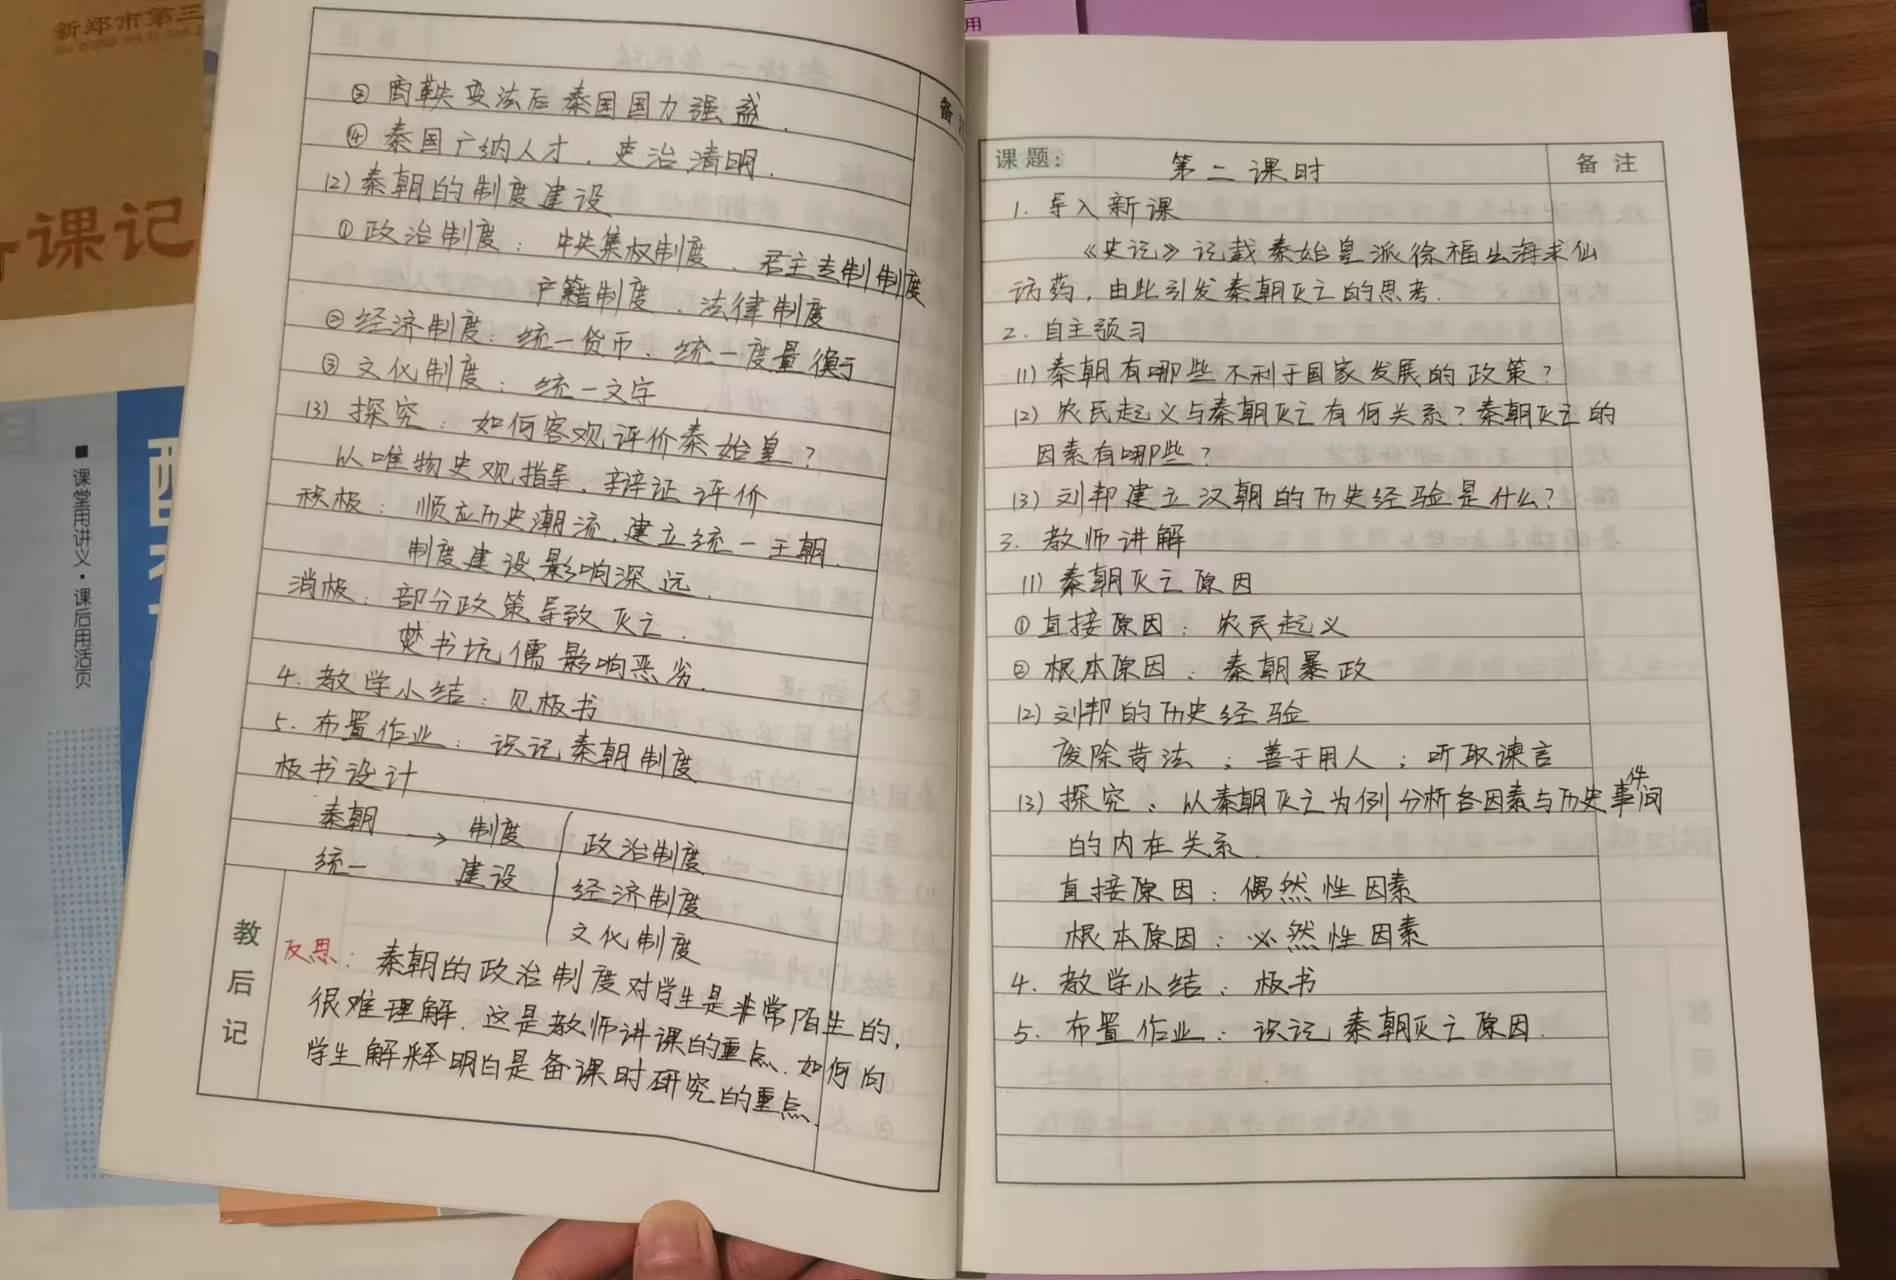 新郑市第三
课记
■ 课堂用讲义·课后用活页
用
备
③ 商鞅变法后秦国国力强盛.
④ 秦国广纳人才，吏治清明.
(2) 秦朝的制度建设
① 政治制度：中央集权制度、君主专制制度
户籍制度、法律制度
② 经济制度：统一货币、统一度量衡
③ 文化制度：统一文字
(3) 探究：如何客观评价秦始皇？
从唯物史观指导，辩证评价
积极：顺应历史潮流，建立统一王朝.
制度建设影响深远.
消极：部分政策导致灭亡.
焚书坑儒影响恶劣.
4. 教学小结：见板书
5. 布置作业：识记秦朝制度
板书设计
秦朝统一 → 制度建设
政治制度
经济制度
文化制度
教后记
反思：秦朝的政治制度对学生是非常陌生的，
很难理解.这是教师讲课的重点.如何向
学生解释明白是备课时研究的重点.
课题： 第二课时 备注
1. 导入新课
《史记》记载秦始皇派徐福出海求仙
药，由此引发秦朝灭亡的思考.
2. 自主预习
(1) 秦朝有哪些不利于国家发展的政策？
(2) 农民起义与秦朝灭亡有何关系？秦朝灭亡的
因素有哪些？
(3) 刘邦建立汉朝的历史经验是什么？
3. 教师讲解
(1) 秦朝灭亡原因
① 直接原因：农民起义
② 根本原因：秦朝暴政
(2) 刘邦的历史经验
废除苛法；善于用人；听取谏言
(3) 探究：以秦朝灭亡为例分析各因素与历史事件间
的内在关系.
直接原因：偶然性因素
根本原因：必然性因素
4. 教学小结：板书
5. 布置作业：识记秦朝灭亡原因.